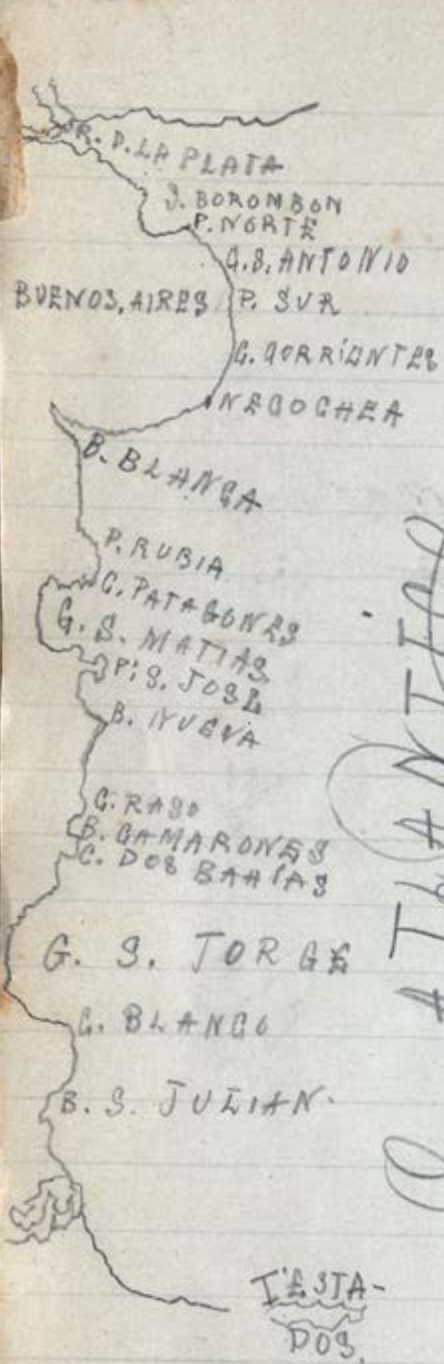 R. D. LA PLATA
S. BOROMBON
P. NORTE
C. S. ANTONIO
BUENOS, AIRES
P. SUR
C. CORRIENTES
NECOCHEA
B. BLANCA
P. RUBIA
C. PATAGONES
G. S. MATIAS
P. S. JOSE
B. NUEVA
C. RASO
B. CAMARONES
C. DOS BAHÍAS
G. S. JORGE
C. BLANCO
B. S. JULIAN.
I. ESTA-
DOS.